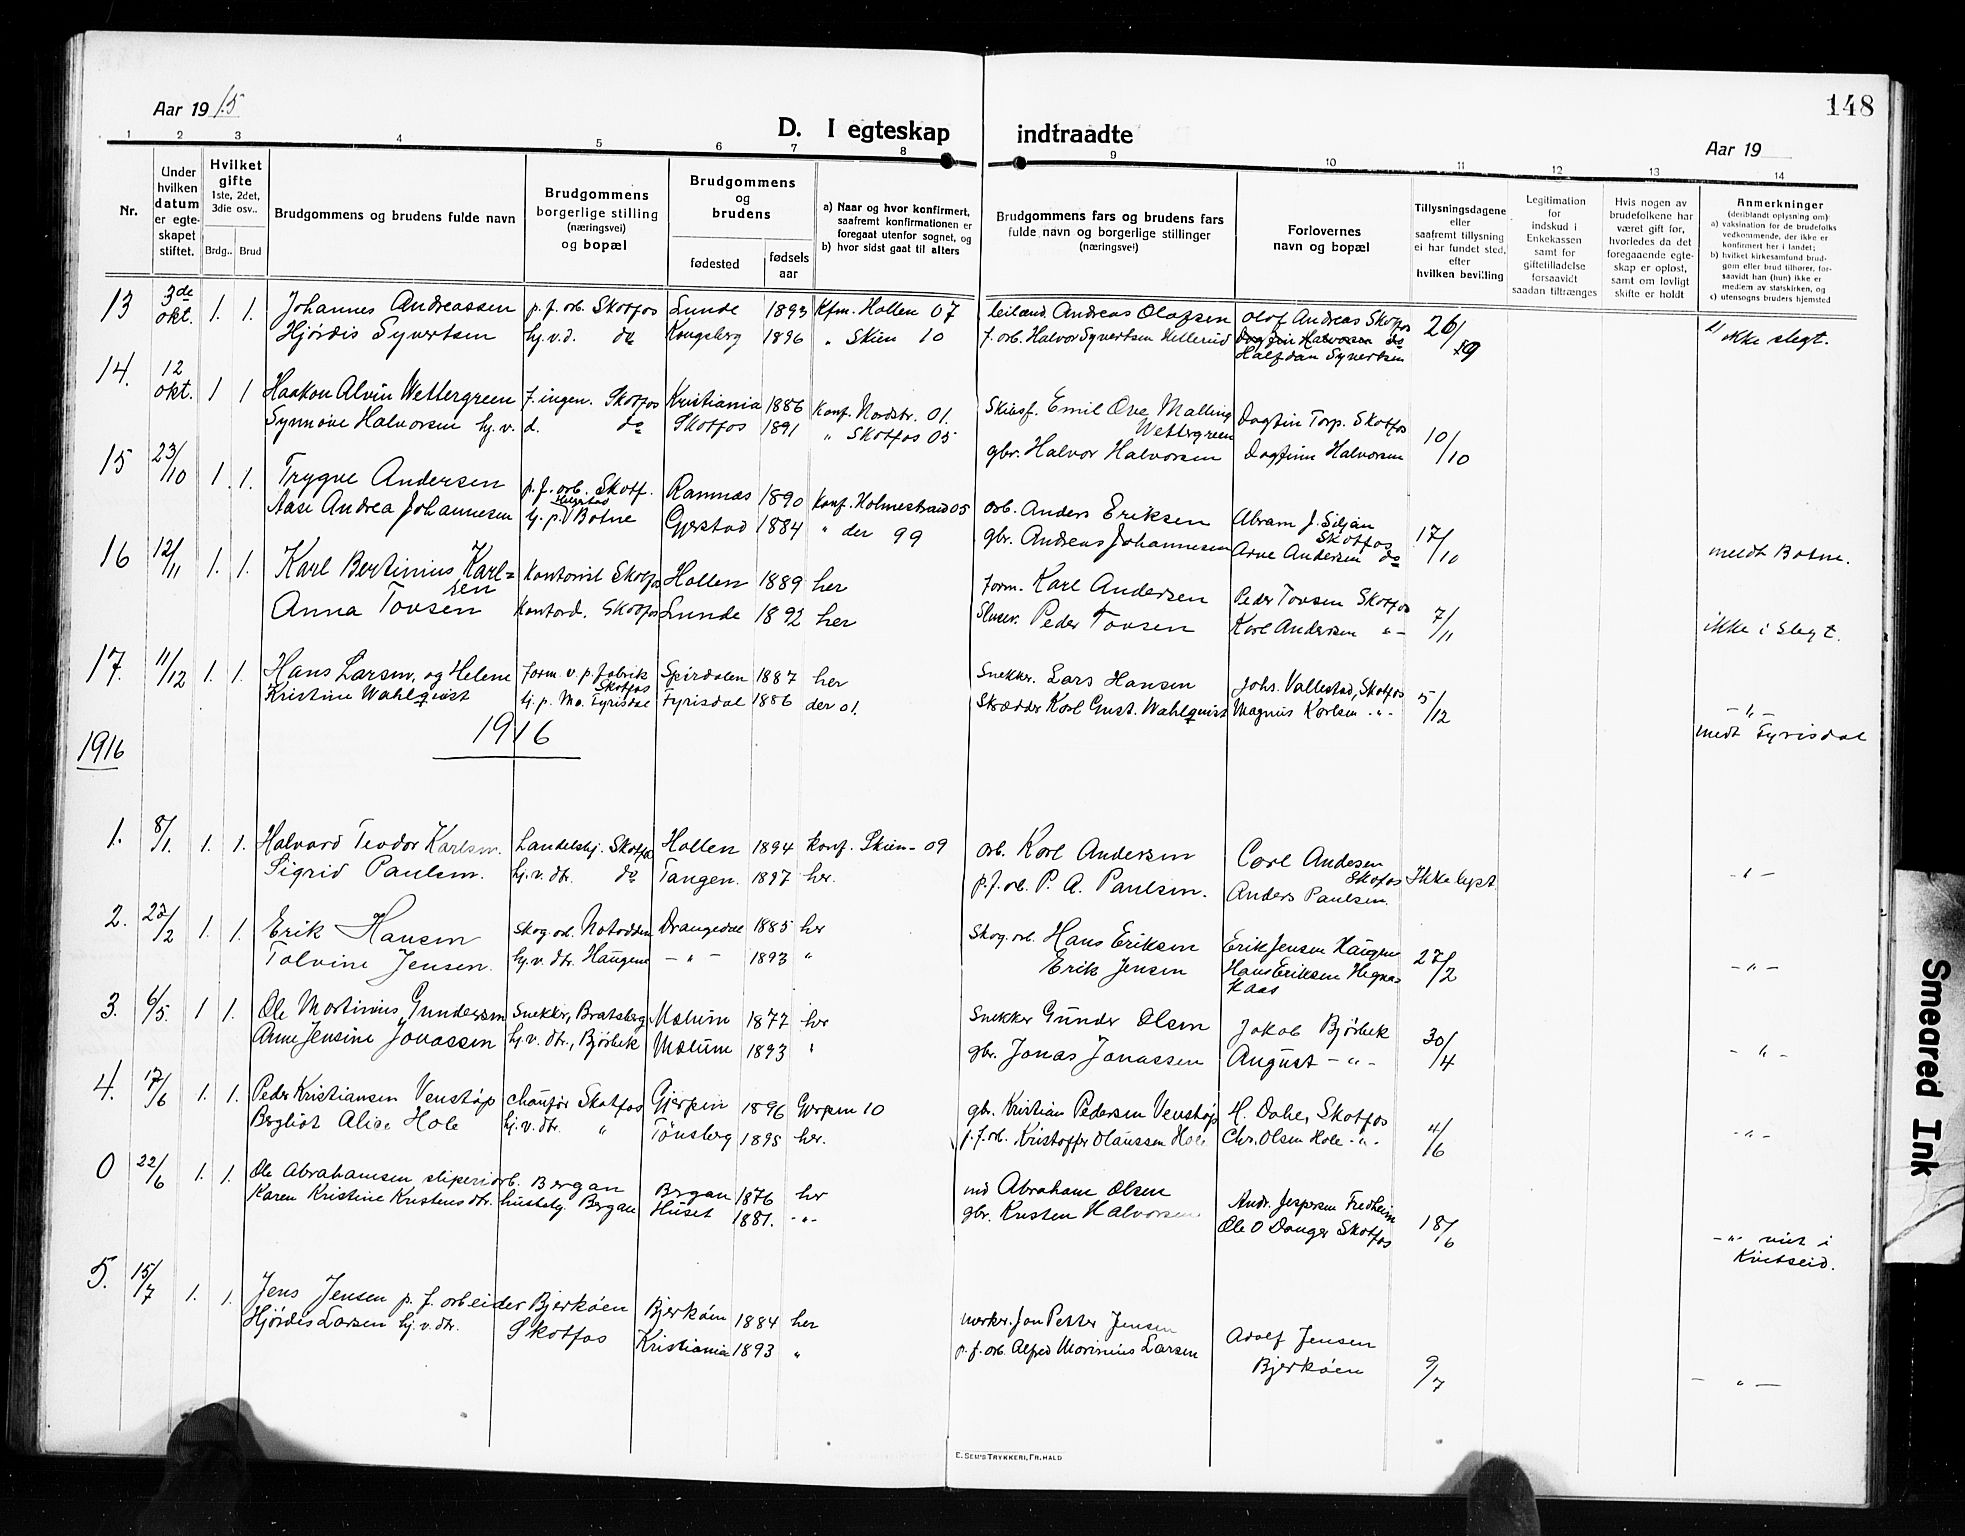 148
Aar 1915
D. I egteskap indtraadte
Aar 19
1 2 3 4 5 6 7 8 9 10 11 12 13 14
Nr.
Under hvilken datum er egteskapet stiftet.
Hvilket gifte
1ste, 2det, 3die osv..
Brdg.. Brud
Brudgommens og brudens fulde navn
Brudgommens borgerlige stilling (næringsvei) og bopæl
Brudgommens og brudens
fødested
fødsels aar
a) Naar og hvor konfirmert, saafremt konfirmationen er foregaat utenfor sognet, og
b) hvor sidst gaat til alters
Brudgommens fars og brudens fars fulde navn og borgerlige stillinger (næringsvei)
Forlovernes navn og bopæl
Tillysningsdagene eller saafremt tillysning ei har fundet sted, efter hvilken bevilling
Legitimation for indskud i Enkekassen samt for giftetilladelse forsaavidt saadan tiltrænges
Hvis nogen av brudefolkene har været gift før, hvorledes da det foregaaende egteskap er opløst, samt om lovligt skifte er holdt
Anmerkninger
(deriblandt oplysning om)
a) vaksination for de brudefolks vedkommende, der ikke er konfirmert her i landet;
b) hvilket kirkesamfund brudgom eller brud tilhører, forsaavidt han (hun) ikke er medlem av statskirken, og
c) utensogns bruders hjemsted
13 3de okt. 1. 1. Johannes Andreassen p. f. arb. Skotfos Lunde 1893 Kfm. Hollen 07 leilænd. Andreas Olafsen Olof Andreas Skotfos 26/9 ikke slegt.
Hjørdis Syvertsen hj.v.d. do Kongsberg 1896 " Skien 10 f. arb. Halvor Syvertsen Hellerud Dagfin Halvorsen do
Halfdan Syvertsen
14. 12 okt. 1 1 Haakon Alvin Wettergreen f. ingen. Skotfos Kristiania 1886 Konf. Nordstr. 01. Skibsf. Emil Ove Malling Wettergreen Dagfin Torp. Skotfos 10/10
Synnøve Halvorsen hj. v. d. do Skotfos 1891 " Skotfos 05 gbr. Halvor Halvorsen Dagfinn Halvorsen
15 23/10 1. 1. Trygve Andersen p. f. arb. Skotf. Ramnæs 1890 Konf. Holmestrand 05 arb. Anders Eriksen Abram J. Siljan Skotfos 17/10
Aase Andrea Johannesen tj. p. Botne Gjerstad 1884 " der 99 gbr. Andreas Johannesen Arne Andersen do meldt Botne.
16 12/11 1. 1. Karl Bertinius Karlsen Kontorist Skotfos Hollen 1889 her form. Karl Andersen Peder Tovsen Skotfos 7/11
Anna Tovsen Kontord. Skotfos Lunde 1892 her Sluser. Peder Tovsen Karl Andersen -"- ikke i slegt.
17. 11/12 1. 1. Hans Larsen, og Helene form. v. p. fabrik Skotfos Spirdalen 1887 her Snekker. Lars Hansen Johs. Vallestad, Skotfos 5/12 -"-
Kristine Wahlqvist tj. p. Mo. Fyrisdal Fyrisdal 1886 der 01. Skrædder Karl Gust. Wahlqvist Magnus Karlsen -"- meldt Fyrisdal
1916 1916
1. 8/1. 1. 1. Halvard Teodor Karlsen. Handelsbj. Skotfos Hollen 1894 Konf. Skien 09 arb. Karl Andersen Carl Andersen Skotfos Ikke lyst. -"-
Sigrid Paulsen. hj. v. dtr. do Tangen. 1897 her. p. f. arb. P. A. Paulsen. Anders Paulsen.
2. 27/2 1. 1. Erik Hansen Skog. arb. Notodden Drangedal 1885 her Skog. arb. Hans Eriksen Erik Jensen Haugene 27/2 -"-
Tolvine Jensen. hj. v. dtr. Haugene -"- 1893 " Erik Jensen Hans Eriksen Hegna-
Kaas
3. 6/5. 1 1. Ole Martinius Gundersen Snekker, Bratsberg Mælum 1877 her Snekker Gunder Olsen Jakob Bjørbek 30/4 -"-
Anne Jensine Jonassen hj. v. dtr., Bjørbek Mælum 1893 " gbr. Jonas Jonassen August -"-
4. 17/6 1. 1. Peder Kristiansen Venstøp chauför Skotfos Gjerpen 1896 Gjerpen 10 gbr. Kristian Pedersen Venstøp H. Dahl, Skotfos 4/6 -"-
Bergliot Alise Hole hj. v. dtr. " Tønsberg 1895 her. p. f. arb. Kristoffer Olaussen Hole Chr. Olsen Hole -"-
0 22/6 1. 1. Ole Abrahamsen sliperiarb. Bergan Bergan 1876 her ind Abraham Olsen Andr. Jespersen Fredheim 18/6
Karen Kristine Kristensdtr. hushbg. Bergan Huset 1881. -"- gbr. Kristen Halvorsen Ole O Danger Skotfos -"- viet i Kvitseid.
5. 15/7 1. 1. Jens Jensen p. f. arbeider Bjerkøen Bjerkøen 1884 her Jan Petter Jensen Adolf Jensen Bjerkøen 9/7 -"-
Hjørdis Larsen hj. v. dtr. Skotfos Kristiania 1893 " p. f. arb. Alfred Marinius Larsen
E. SEM'S TRYKKERI, FR.HALD
Smeared Ink